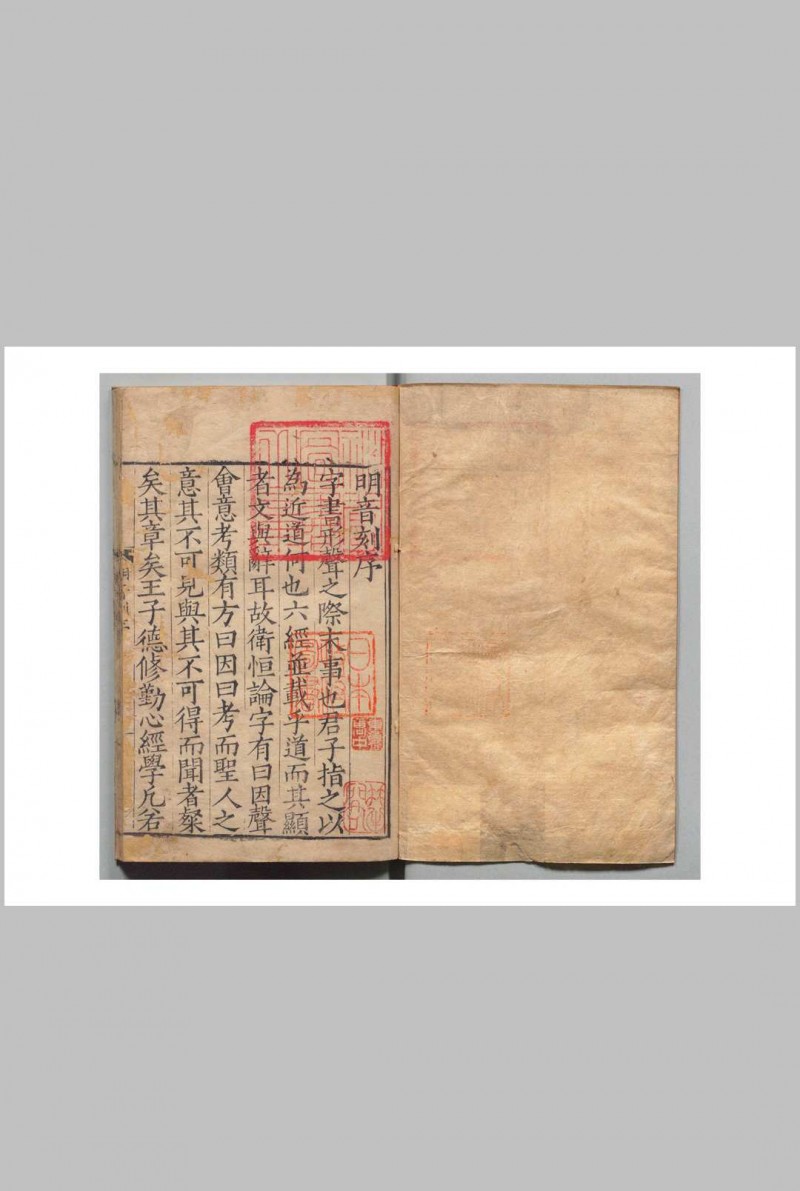 明音刻序
字書形聲之際末事也君子指之以
為近道何也六經並載乎道而其顯
者文與辭耳故衛恒論字有曰因聲
會意考類有方曰因曰考而聖人之
意其不可見與其不可得而聞者粲
矣其章矣王子德修勤心經學凡若
日本